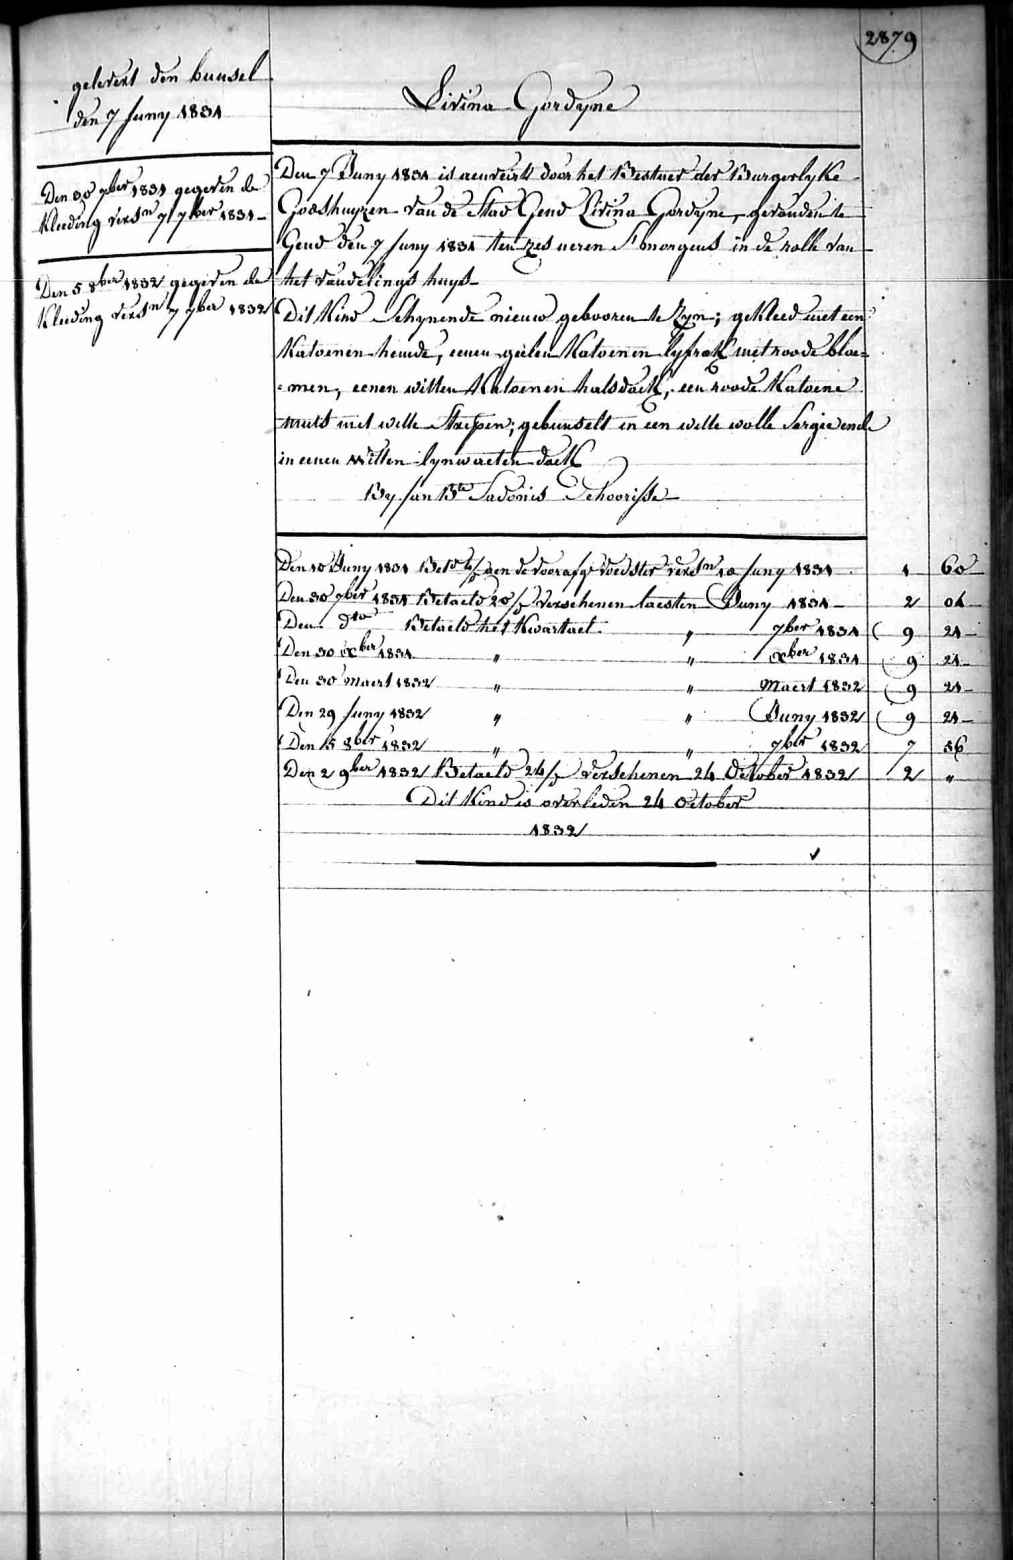 2879
gelevert den bunsel
den 7 Juny 1831
Den 30 7ber 1831 gegeven de
Kleeding versn 7 7ber 1831
Den 5 8ber 1832 gegeven de
Kleeding versn 7 7ber 1832
Livina Gordyne
Den 7 Juny 1831 is aenveirt door het Bestuer der Burgerlyke
Godshuyzen van de Stad Gend Livina Gordyne, gevonden te
Gend den 7 Juny 1831 ten zes ueren S'morgens in de rolle van
het vondelings huys
Dit Kind Schynende nieuw gebooren te Zyn; gekleed met een
Katoenen hemde, eenen geelen Katoenen lyfrok met roode bloe=
=men, eenen witten Katoenen halsdoek, een roode Katoene
muts met witte Strepen; gebunselt in een witte wolle Sergie ende
in eenen Witten lynwaeten doek
By Jan Bte Sadonis Schoorisse
Den 10 Juny 1831 aen de voorafge voedster versn 10 Juny 1831 1 60
Den 30 7ber 1831 Betaeld 20/ verschenen laesten Juny 1831 2 04
Den dto Betaeld het Kwartael " 7ber 1831 9 21
Den 30 xber 1831 " " xber 1831 9 21
Den 30 Maert 1832 " " Maert 1832 9 21
Den 29 Juny 1832 " " Juny 1832 9 21
Den 15 8ber 1832 " " 7ber 1832 7 36
Den 2 9ber 1832 Betaeld 24/ verschenen 24 October 1832 2 "
Dit Kind is overleden 24 October
1832